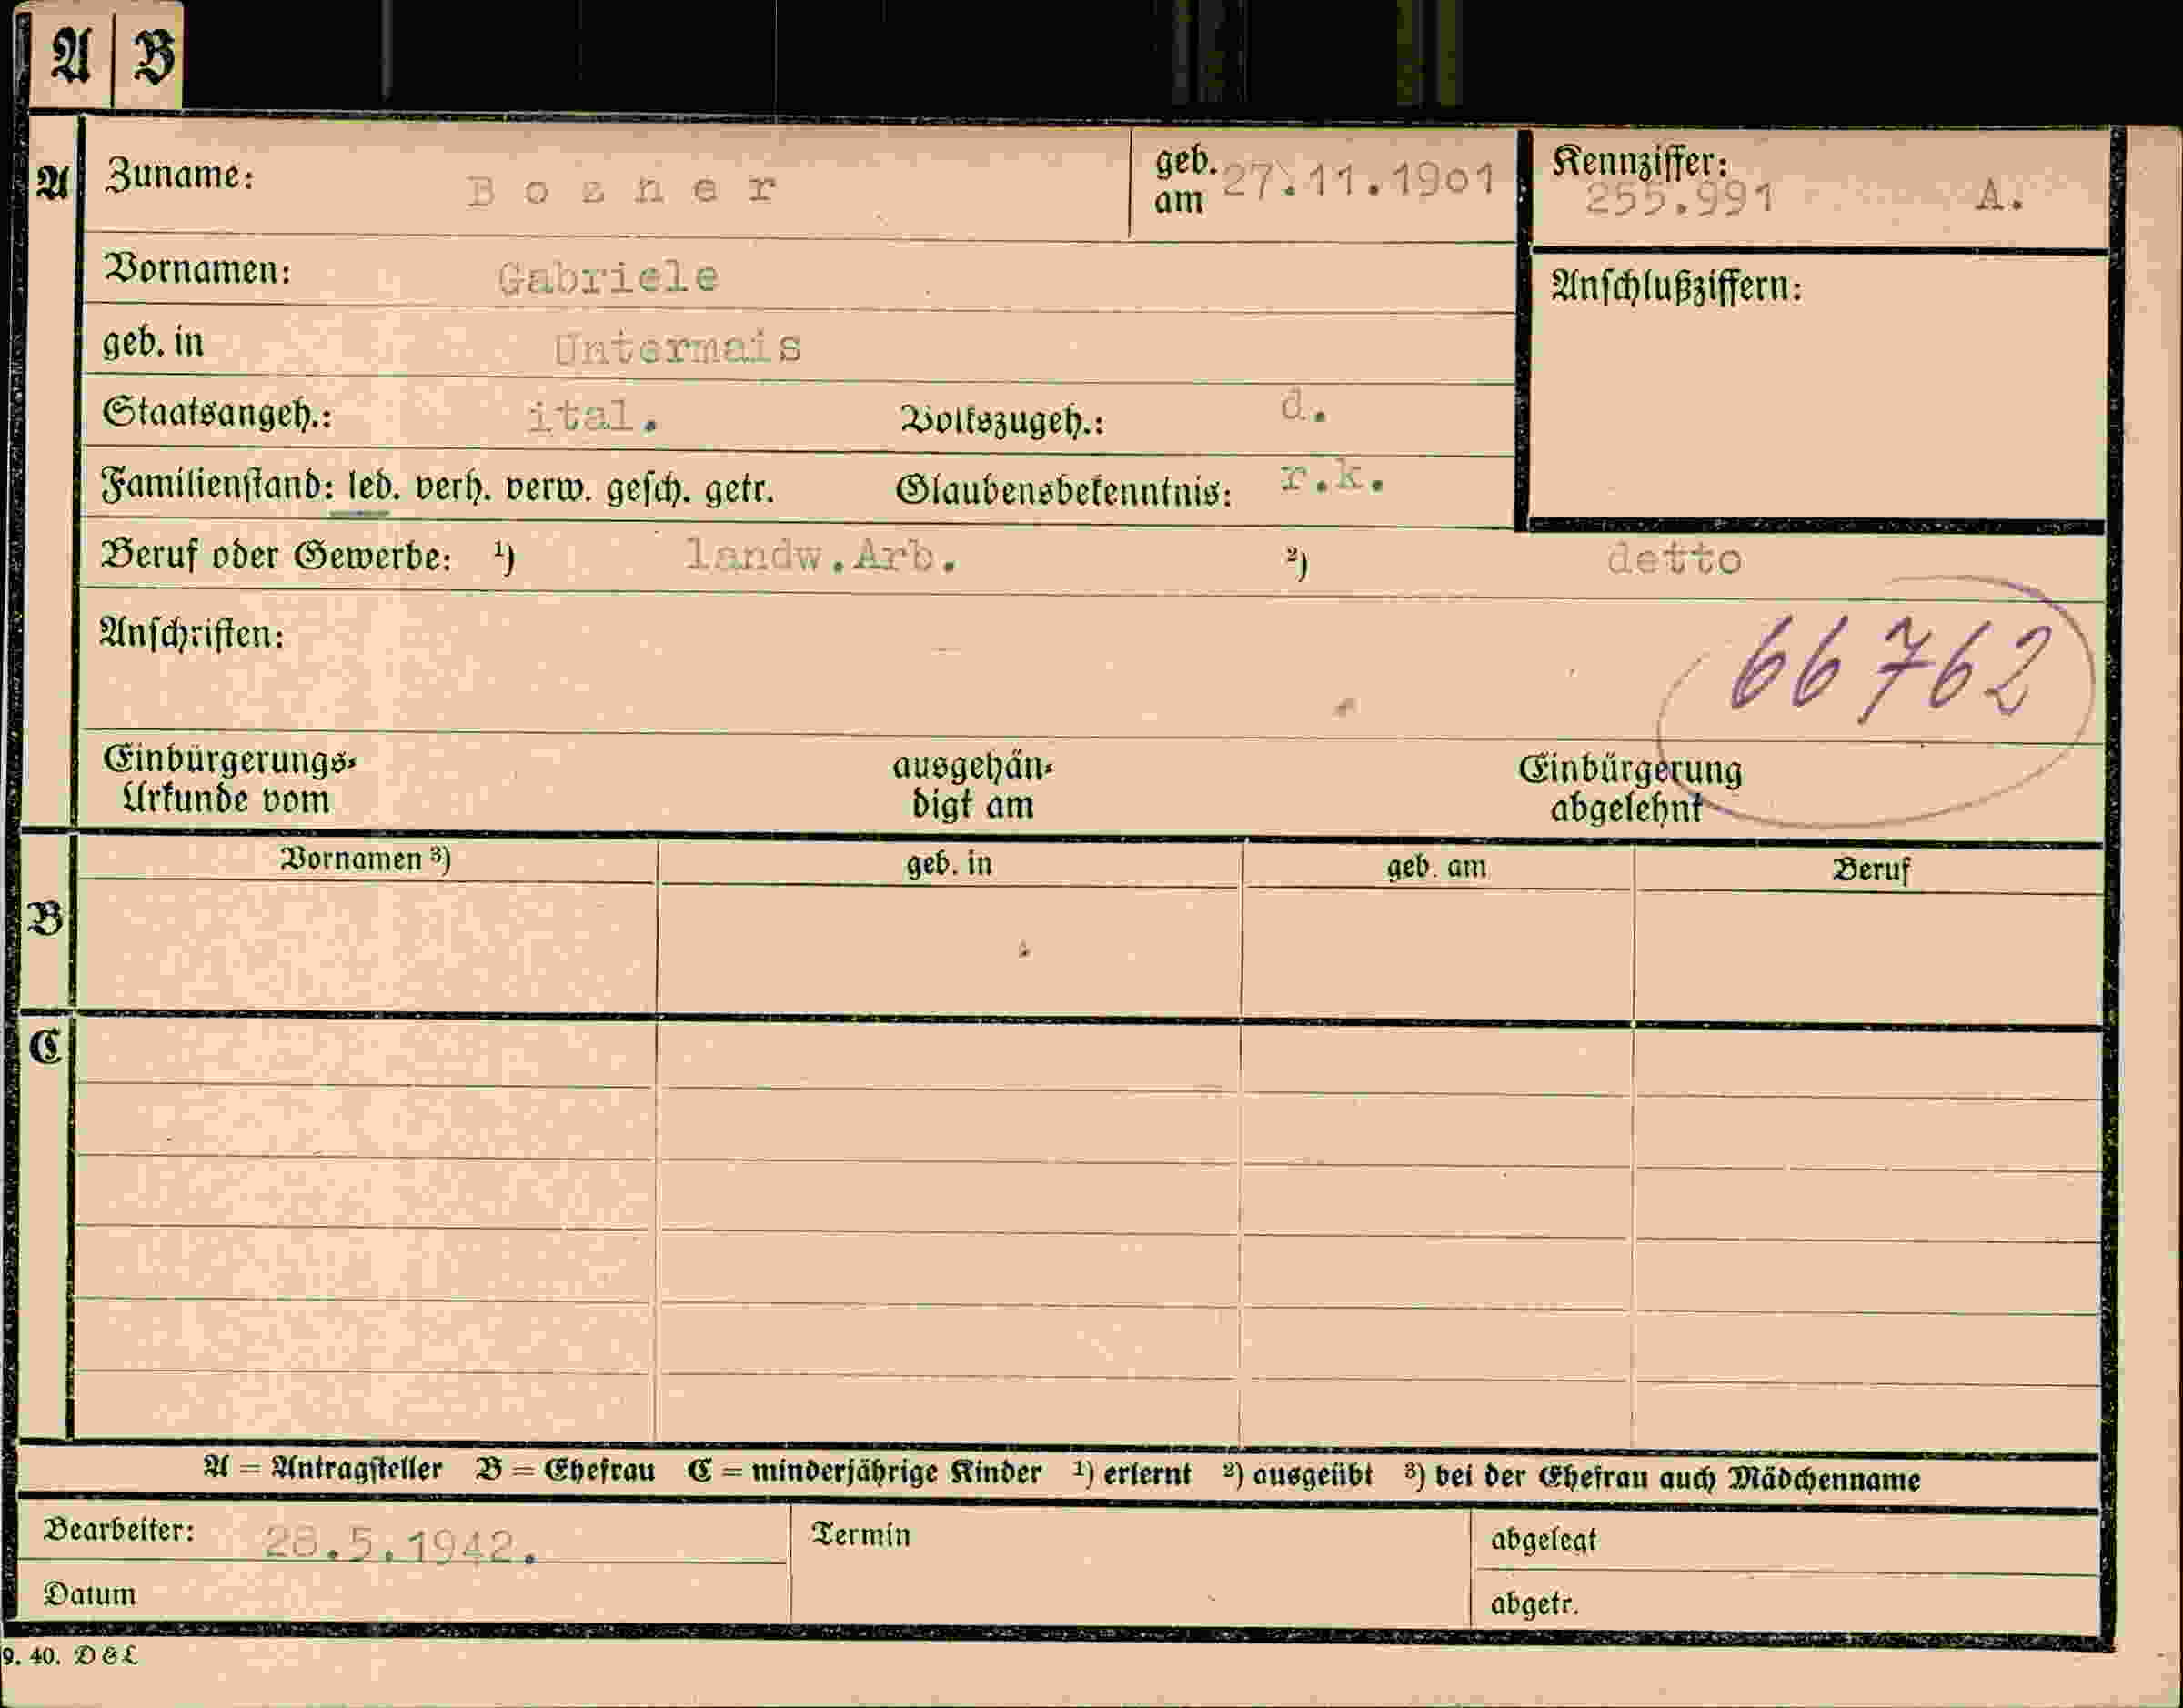 A B
A Zuname: Bozner geb. am 27.11.1901 Kennziffer: 255.991 A.
Vornamen: Gabriele Anschlußziffern:
geb. in Untermais
Staatsangeh.: ital. Volkszugeh.: d.
Familienstand: led. verh. verw. gesch. getr. Glaubensbekenntnis: r.k.
Beruf oder Gewerbe: ¹) landw.Arb. ²) detto
Anschriften: 66762
Einbürgerungs- ausgehän- Einbürgerung
Urkunde vom digt am abgelehnt
Vornamen ³) geb. in geb. am Beruf
B
C
A = Antragsteller B = Ehefrau C = minderjährige Kinder ¹) erlernt ²) ausgeübt ³) bei der Ehefrau auch Mädchenname
Bearbeiter: 28.5.1942. Termin abgelegt
Datum abgetr.
9. 40. D & L